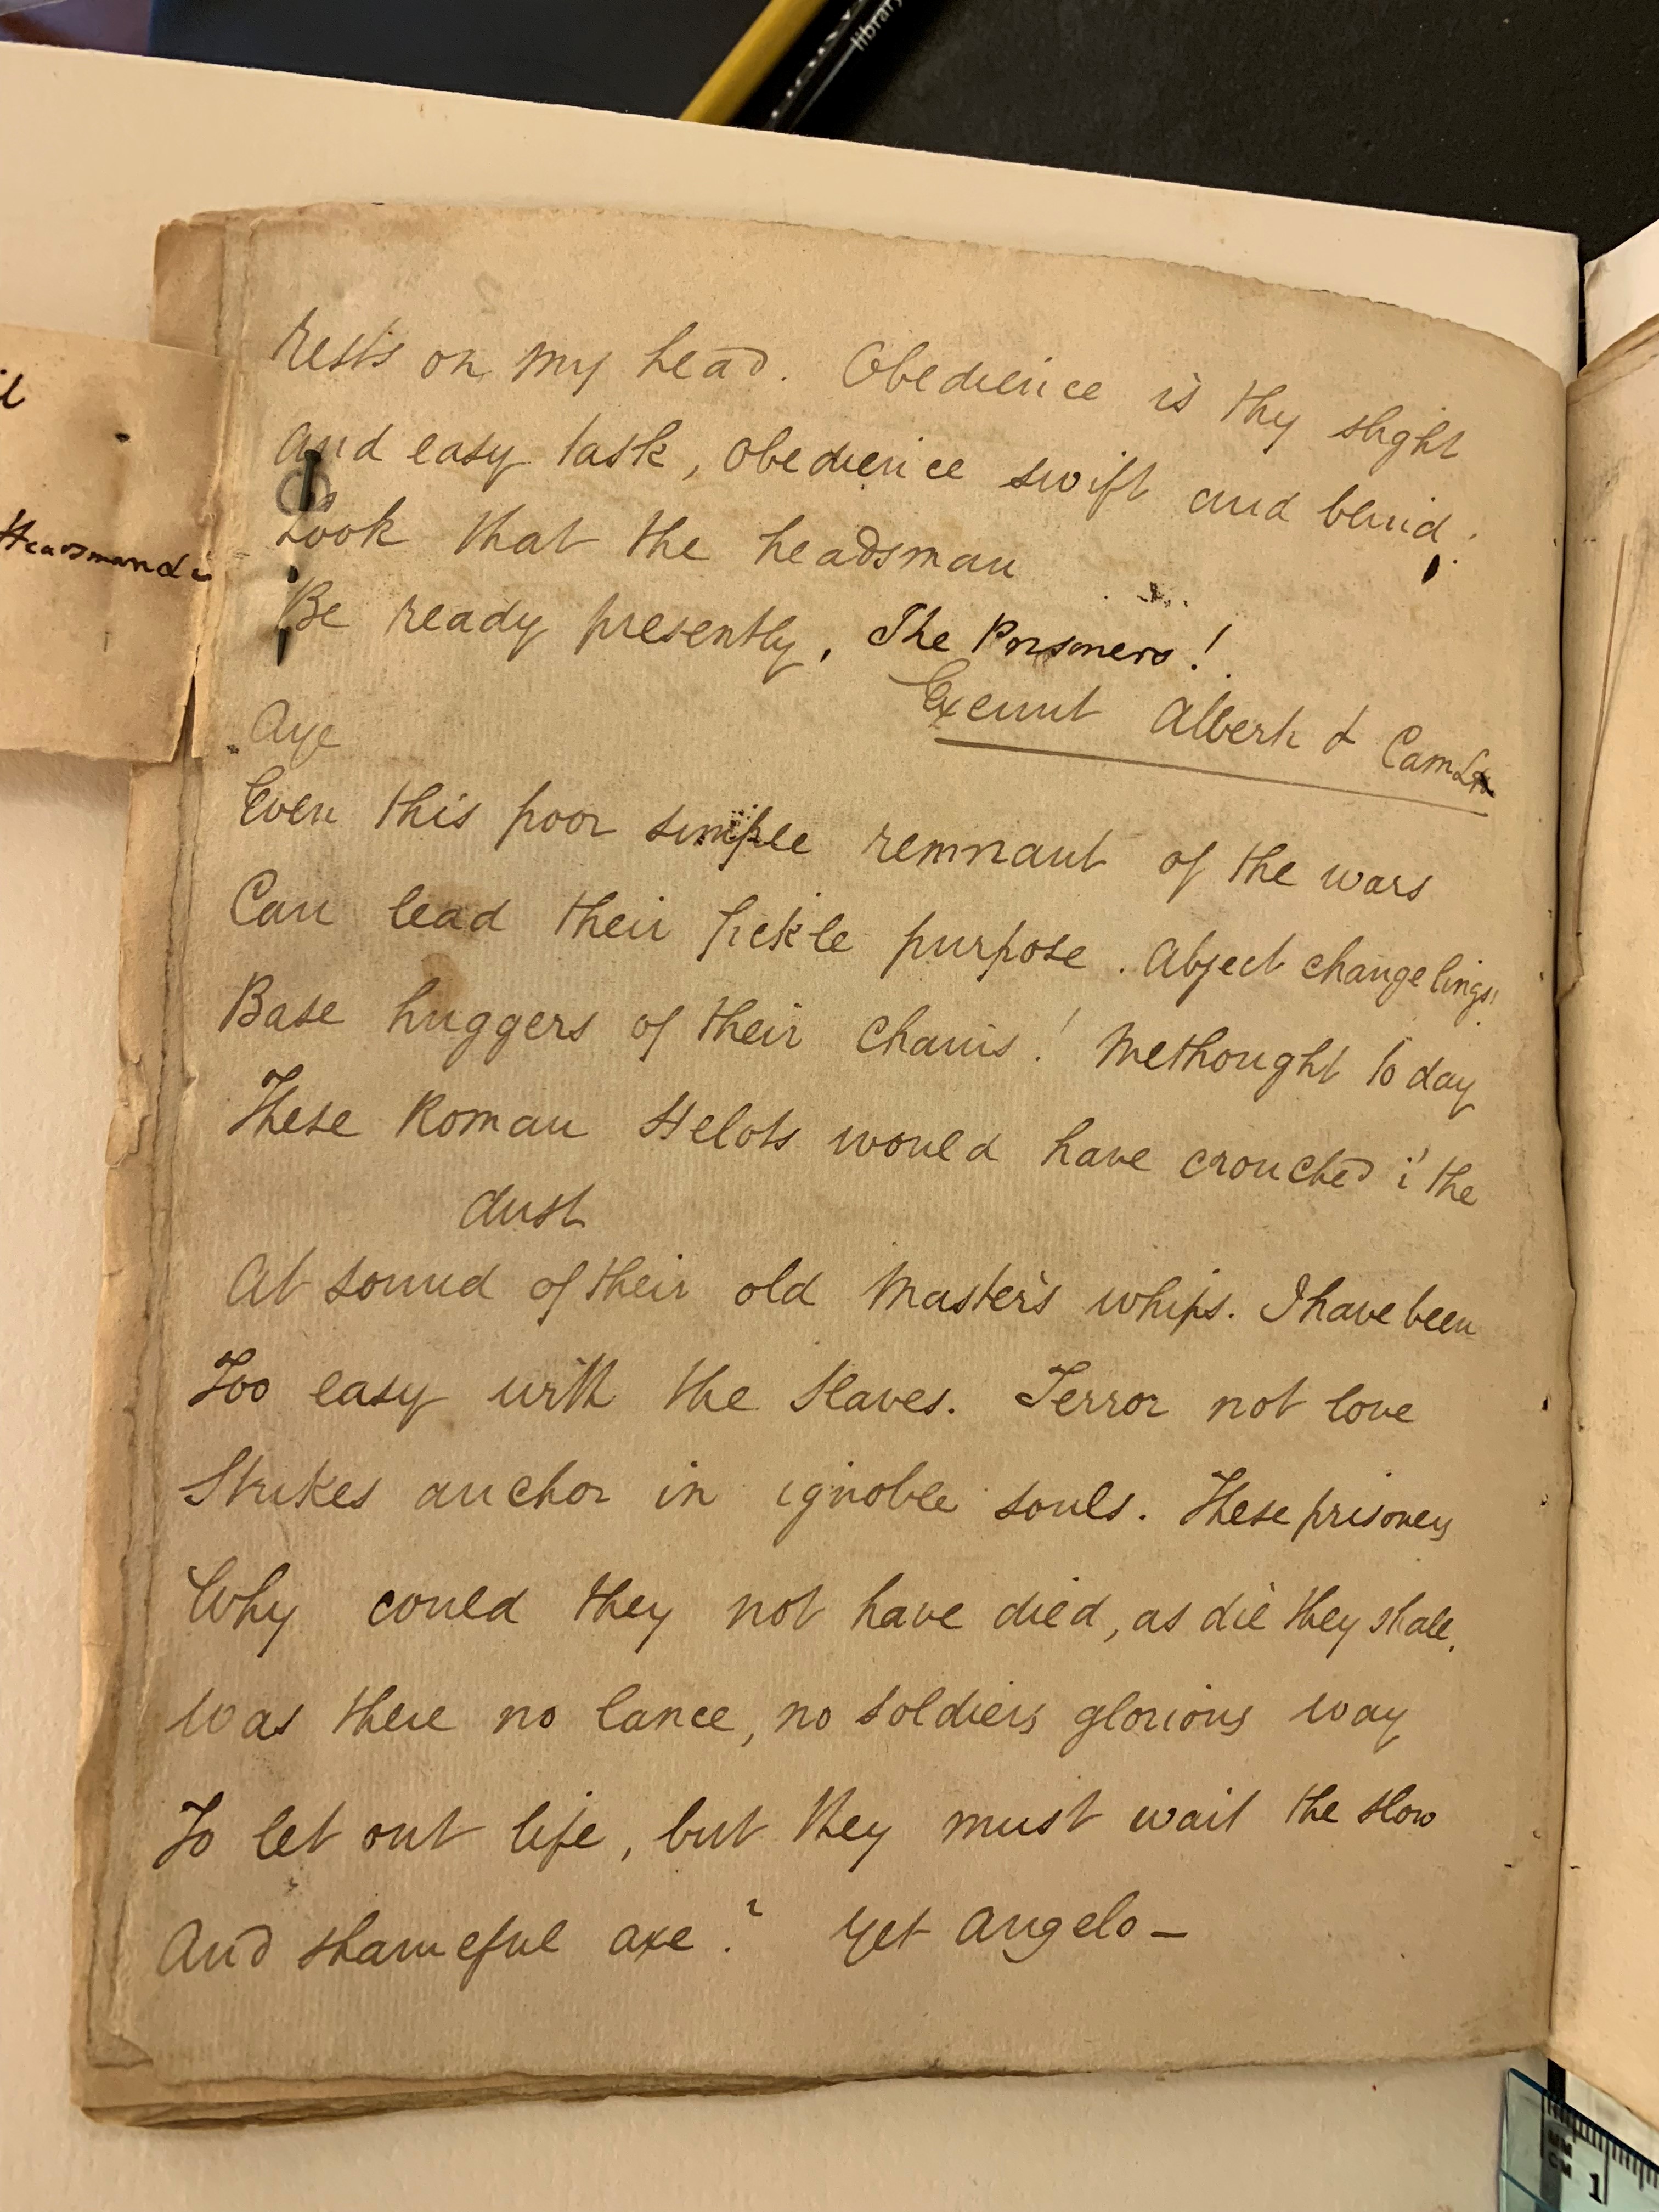 library
il
Headsmand
rests on my head. Obedience is thy slight
and easy task, Obedience swift and blind!
Look that the headsman
Be ready presently. The Prisoners!
Exeunt Albert &
Aye
Even this poor simple remnant of the wars
Can lead their fickle purpose. Abject changelings!
Base huggers of their chains! Methought to day
These Roman Helots would have crouched i' the
dust
At sound of their old Master's whips. I have been
Too easy with the slaves. Terror not love
Strikes anchor in ignoble souls. These prisoners
Why could they not have died, as die they shall.
Was there no lance, no soldiers glorious way
To let out life, but they must wait the slow
And shameful axe? Yet Angelo —
MM
CM 1